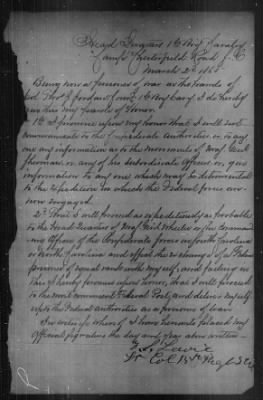 Head Quarters 1st Brig Cavalry
Camp Chesterfield Road S.C.
March 2d 1865
Being now a prisoner of war in the hands of
Col Thos J. Jordan Com'g 1st Brig Cavy I do hereby
give this my parole of honor.
1st I promise upon my honor that I will not
communicate to the Confederate Authorities or to any
one any information as to the movements of Maj Genl
Sherman or any of his subordinate officers or give
information to any one which may be detrimental
to the Expedition in which the Federal forces are
now engaged.
2d That I will proceed as expeditiously as possible
to the Head Quarters of Maj Genl Wheeler or the Command
ing Officer of the Confederate forces in South Carolina
or North Carolina and effect the exchange of a Federal
prisoner of equal rank with myself, and failing in
this I hereby promise upon honor, that I will proceed
to the most convenient Federal Post, and deliver myself
up to the Federal Authorities as a prisoner of war.
In witness whereof I have hereunto placed my
official signature the day and year above written
Lt Col